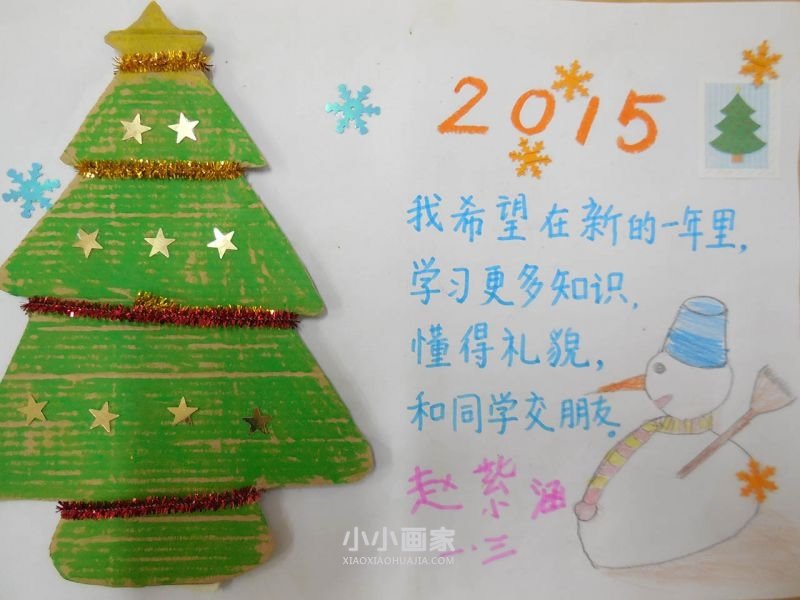 2015
我希望在新的一年里，
学习更多知识，
懂得礼貌，
和同学交朋友。
赵紫涵
二.三
小小画家
XIAOXIAOHUAJIA.COM